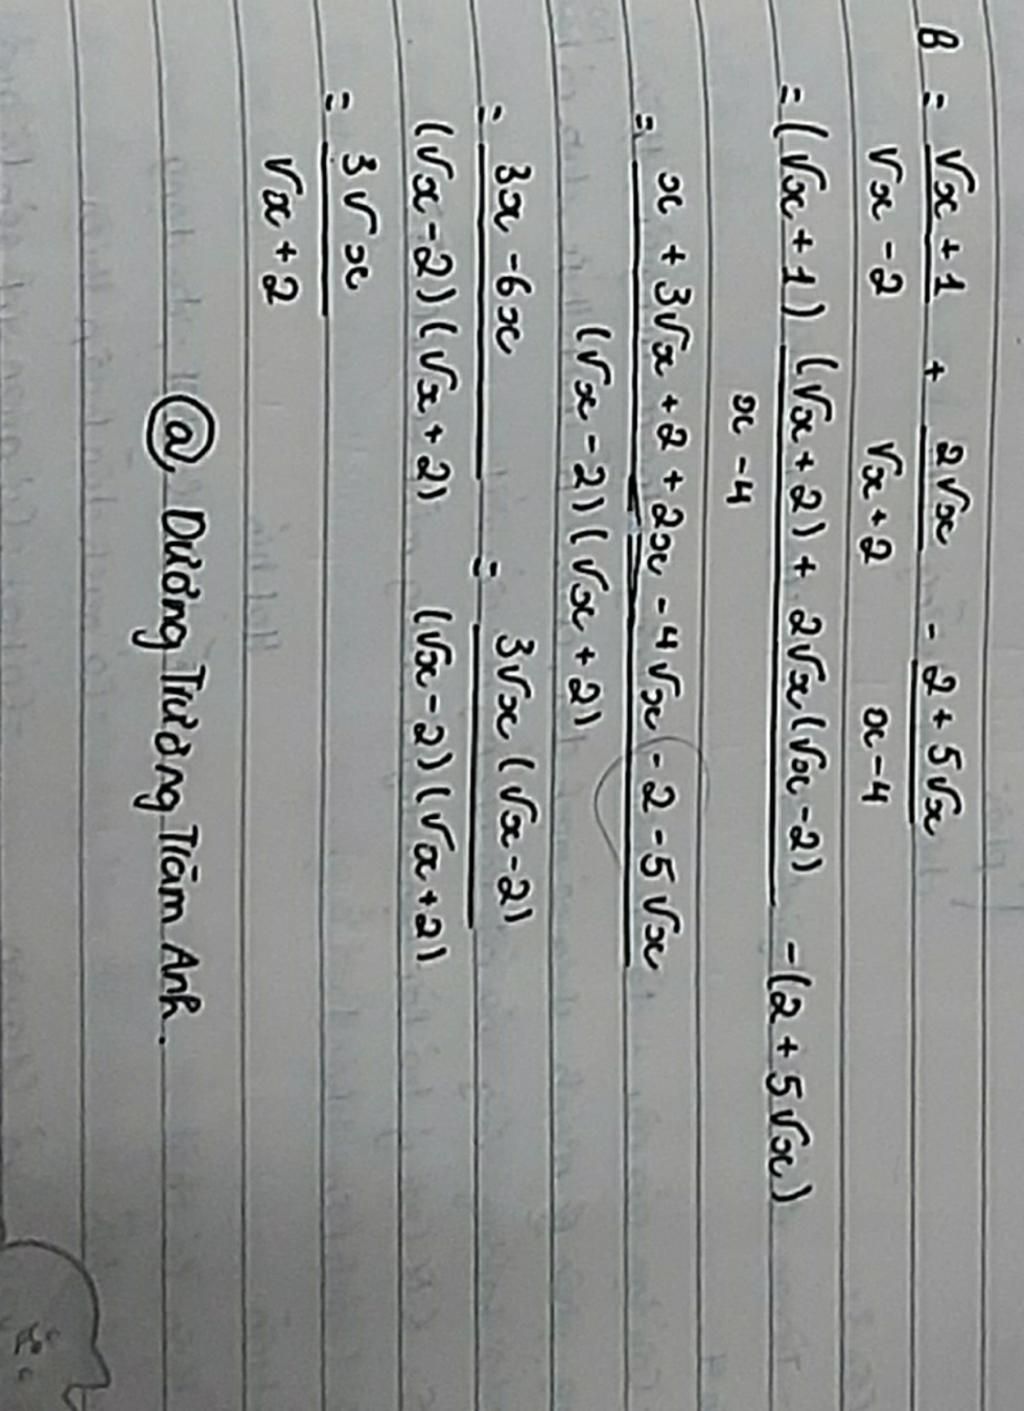 B = √x + 1 / √x - 2 + 2√x / √x + 2 - 2 + 5√x / x - 4
= (√x + 1) (√x + 2) + 2√x (√x - 2) - (2 + 5√x) / x - 4
= x + 3√x + 2 + 2x - 4√x - 2 - 5√x / (√x - 2) (√x + 2)
= 3x - 6x / (√x - 2) (√x + 2) = 3√x (√x - 2) / (√x - 2) (√x + 2)
= 3√x / √x + 2
@, Dương Trương Trâm Anh.